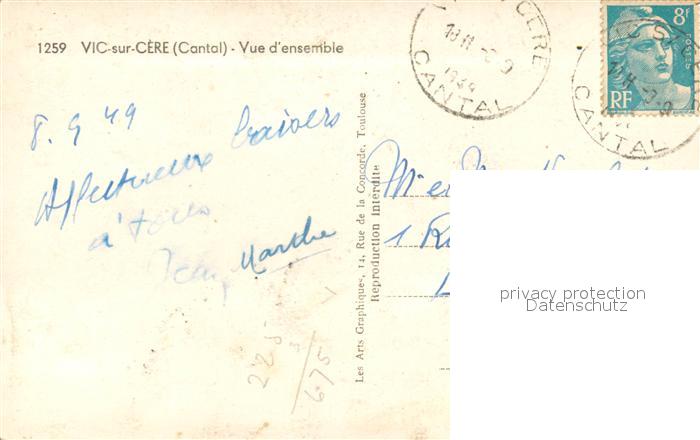 1259 VIC-sur-CÈRE (Cantal) - Vue d'ensemble
CÈRE
CANTAL
8F
POSTES
RF
CANTAL
8.9.49
Affectueux baisers
à tous
Jean Marthe
Les Arts Graphiques, 14, Rue de la Concorde, Toulouse
Reproduction interdite
M et M
1 R
225
3
675
privacy protection
Datenschutz